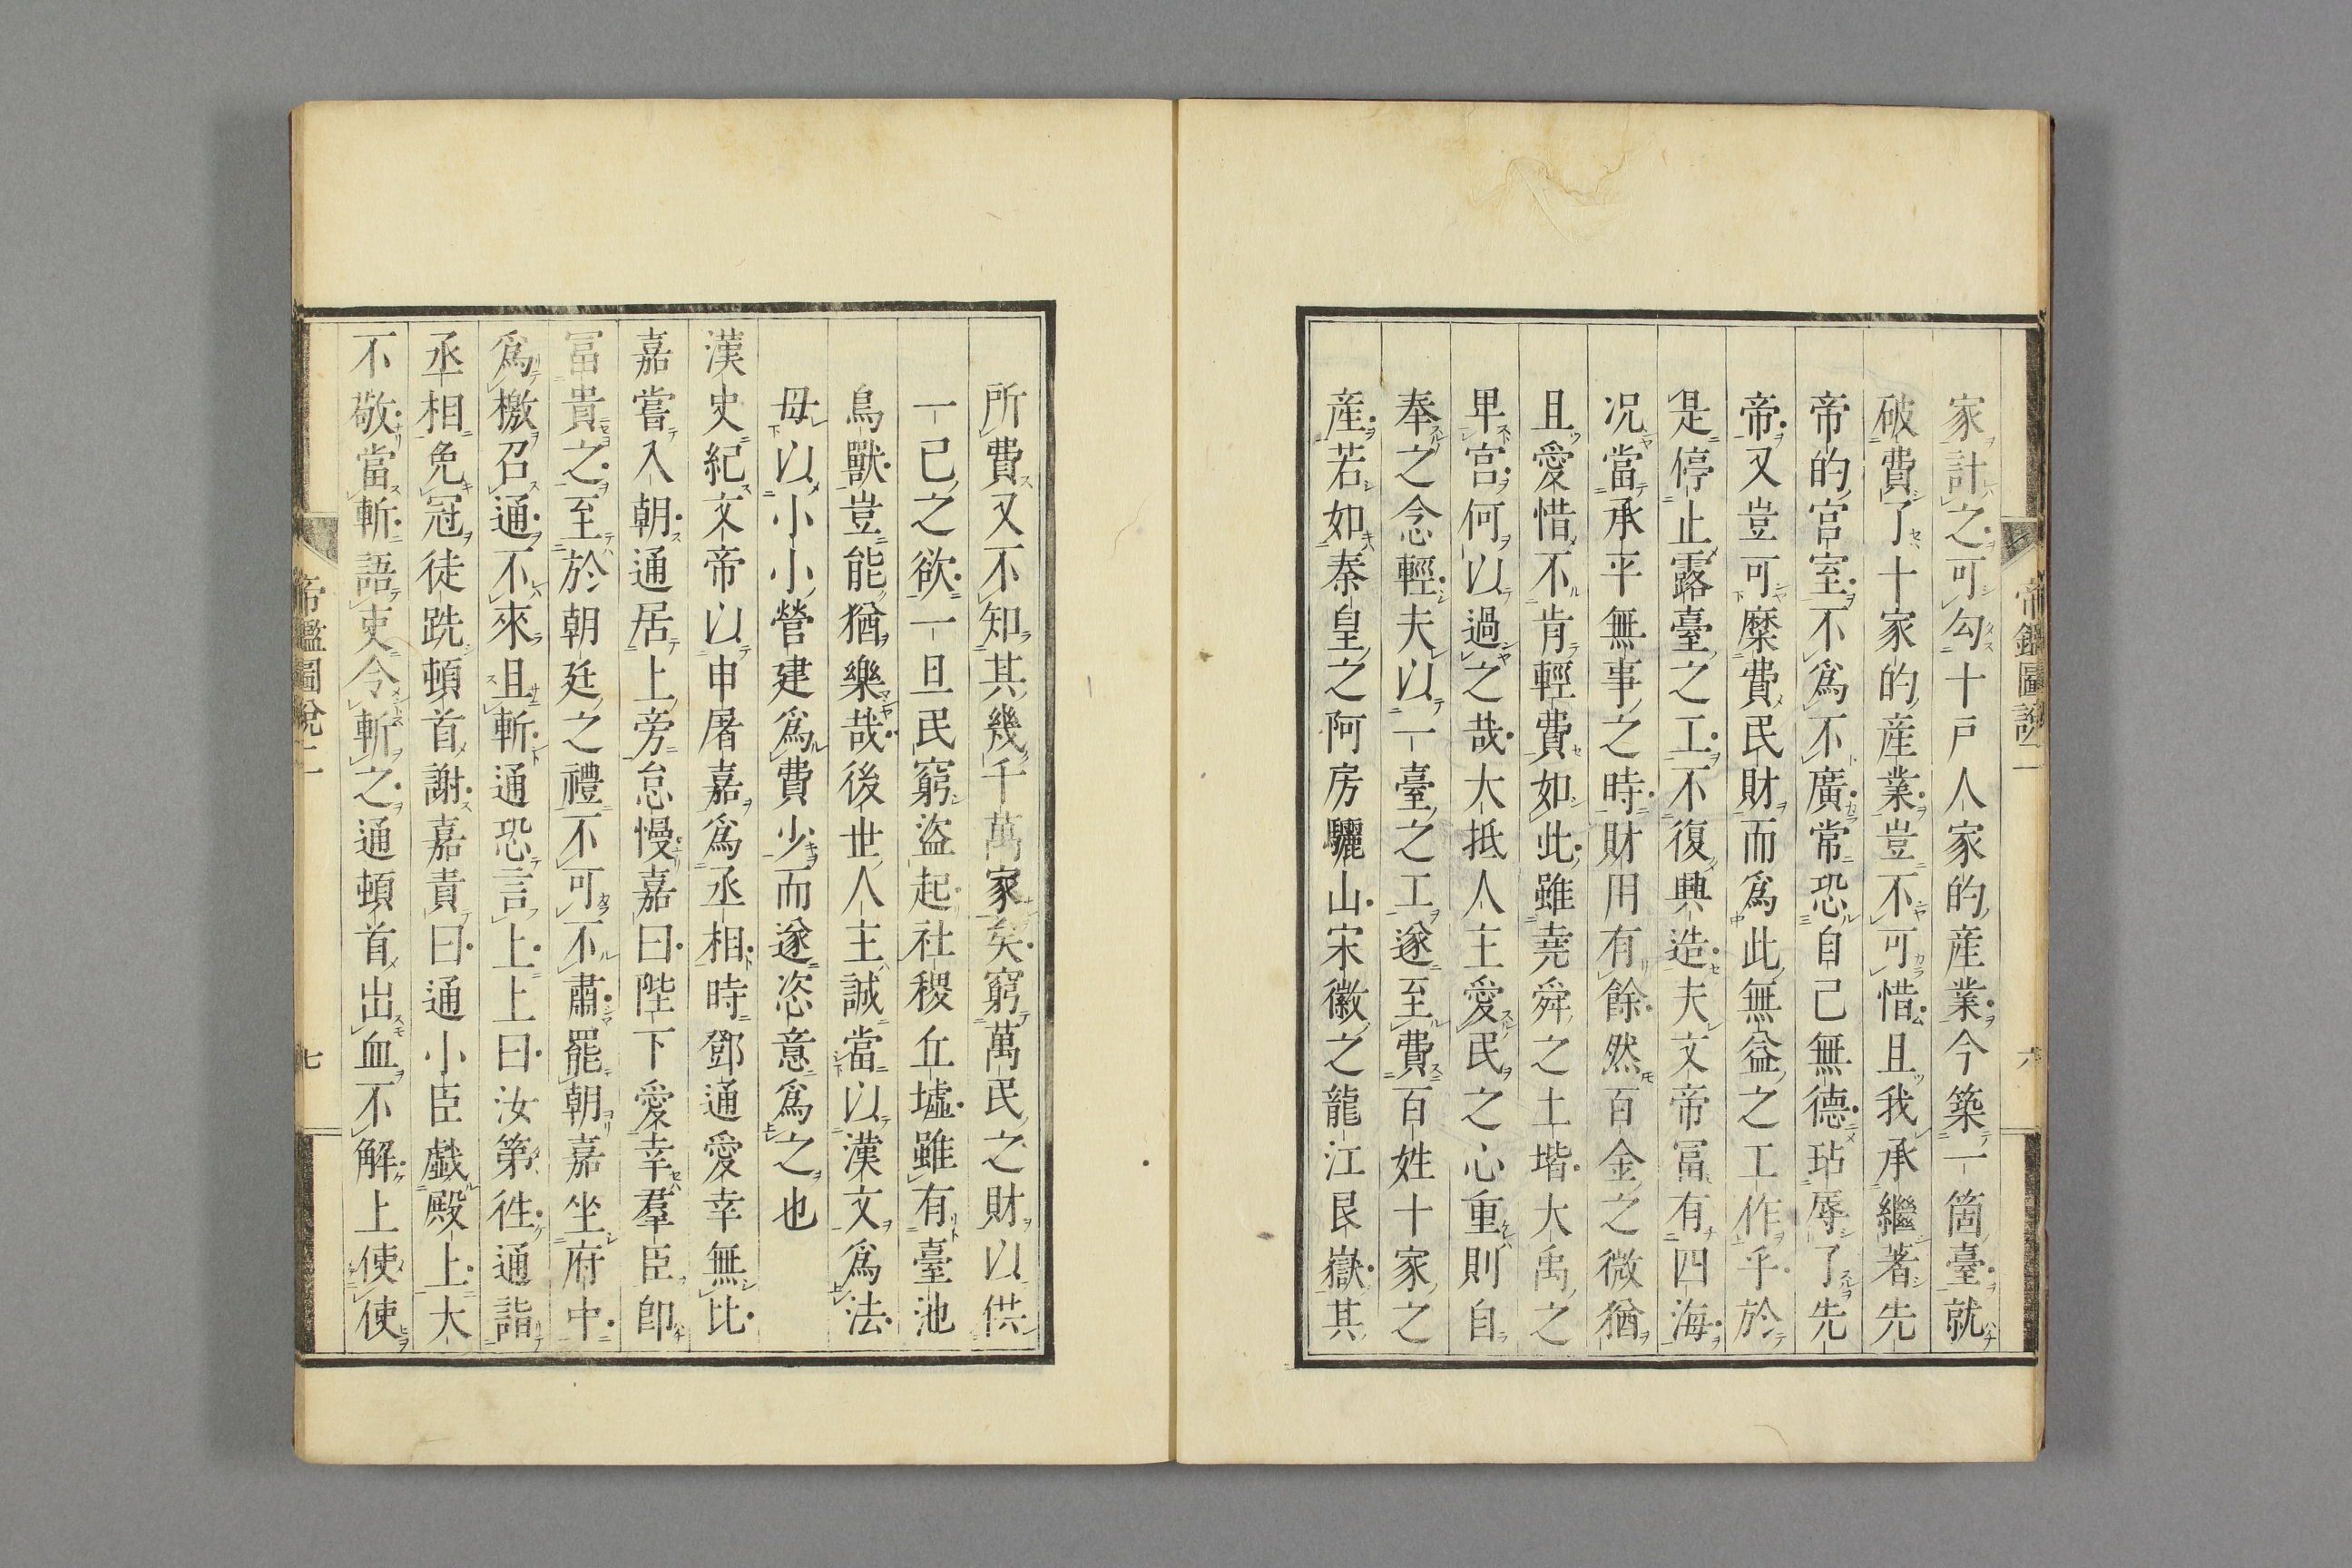 帝鑑圖說二
六
家計之可勾十戶人家的産業今築一箇臺就
破費了十家的産業豈不可惜且我承繼著先
帝的宮室不爲不廣常恐自己無德玷辱了先
帝又豈可糜費民財而爲此無益之工作乎於
是停止露臺之工不復興造夫文帝冨有四海
况當承平無事之時財用有餘然百金之微猶
且愛惜不肯輕費如此雖堯舜之土堦大禹之
卑宮何以過之哉大抵人主愛民之心重則自
奉之念輕夫以一臺之工遂至費百姓十家之
産若如秦皇之阿房驪山宋徽之龍江艮嶽其
所費又不知其幾千萬家矣窮萬民之財以供
一己之欲一旦民窮盜起社稷丘墟雖有臺池
鳥獸豈能猶樂哉後世人主誠當以漢文爲法
毋以小小營建爲費少而遂恣意爲之也
漢史紀文帝以申屠嘉爲丞相時鄧通愛幸無比
嘉嘗入朝通居上旁怠慢嘉曰陛下愛幸羣臣卽
冨貴之至於朝廷之禮不可不肅罷朝嘉坐府中
爲檄召通不來且斬通恐言上上曰汝第徃通詣
丞相免冠徒跣頓首謝嘉責曰通小臣戲殿上大
不敬當斬語吏令斬之通頓首出血不解上使使
帝鑑圖說二
七